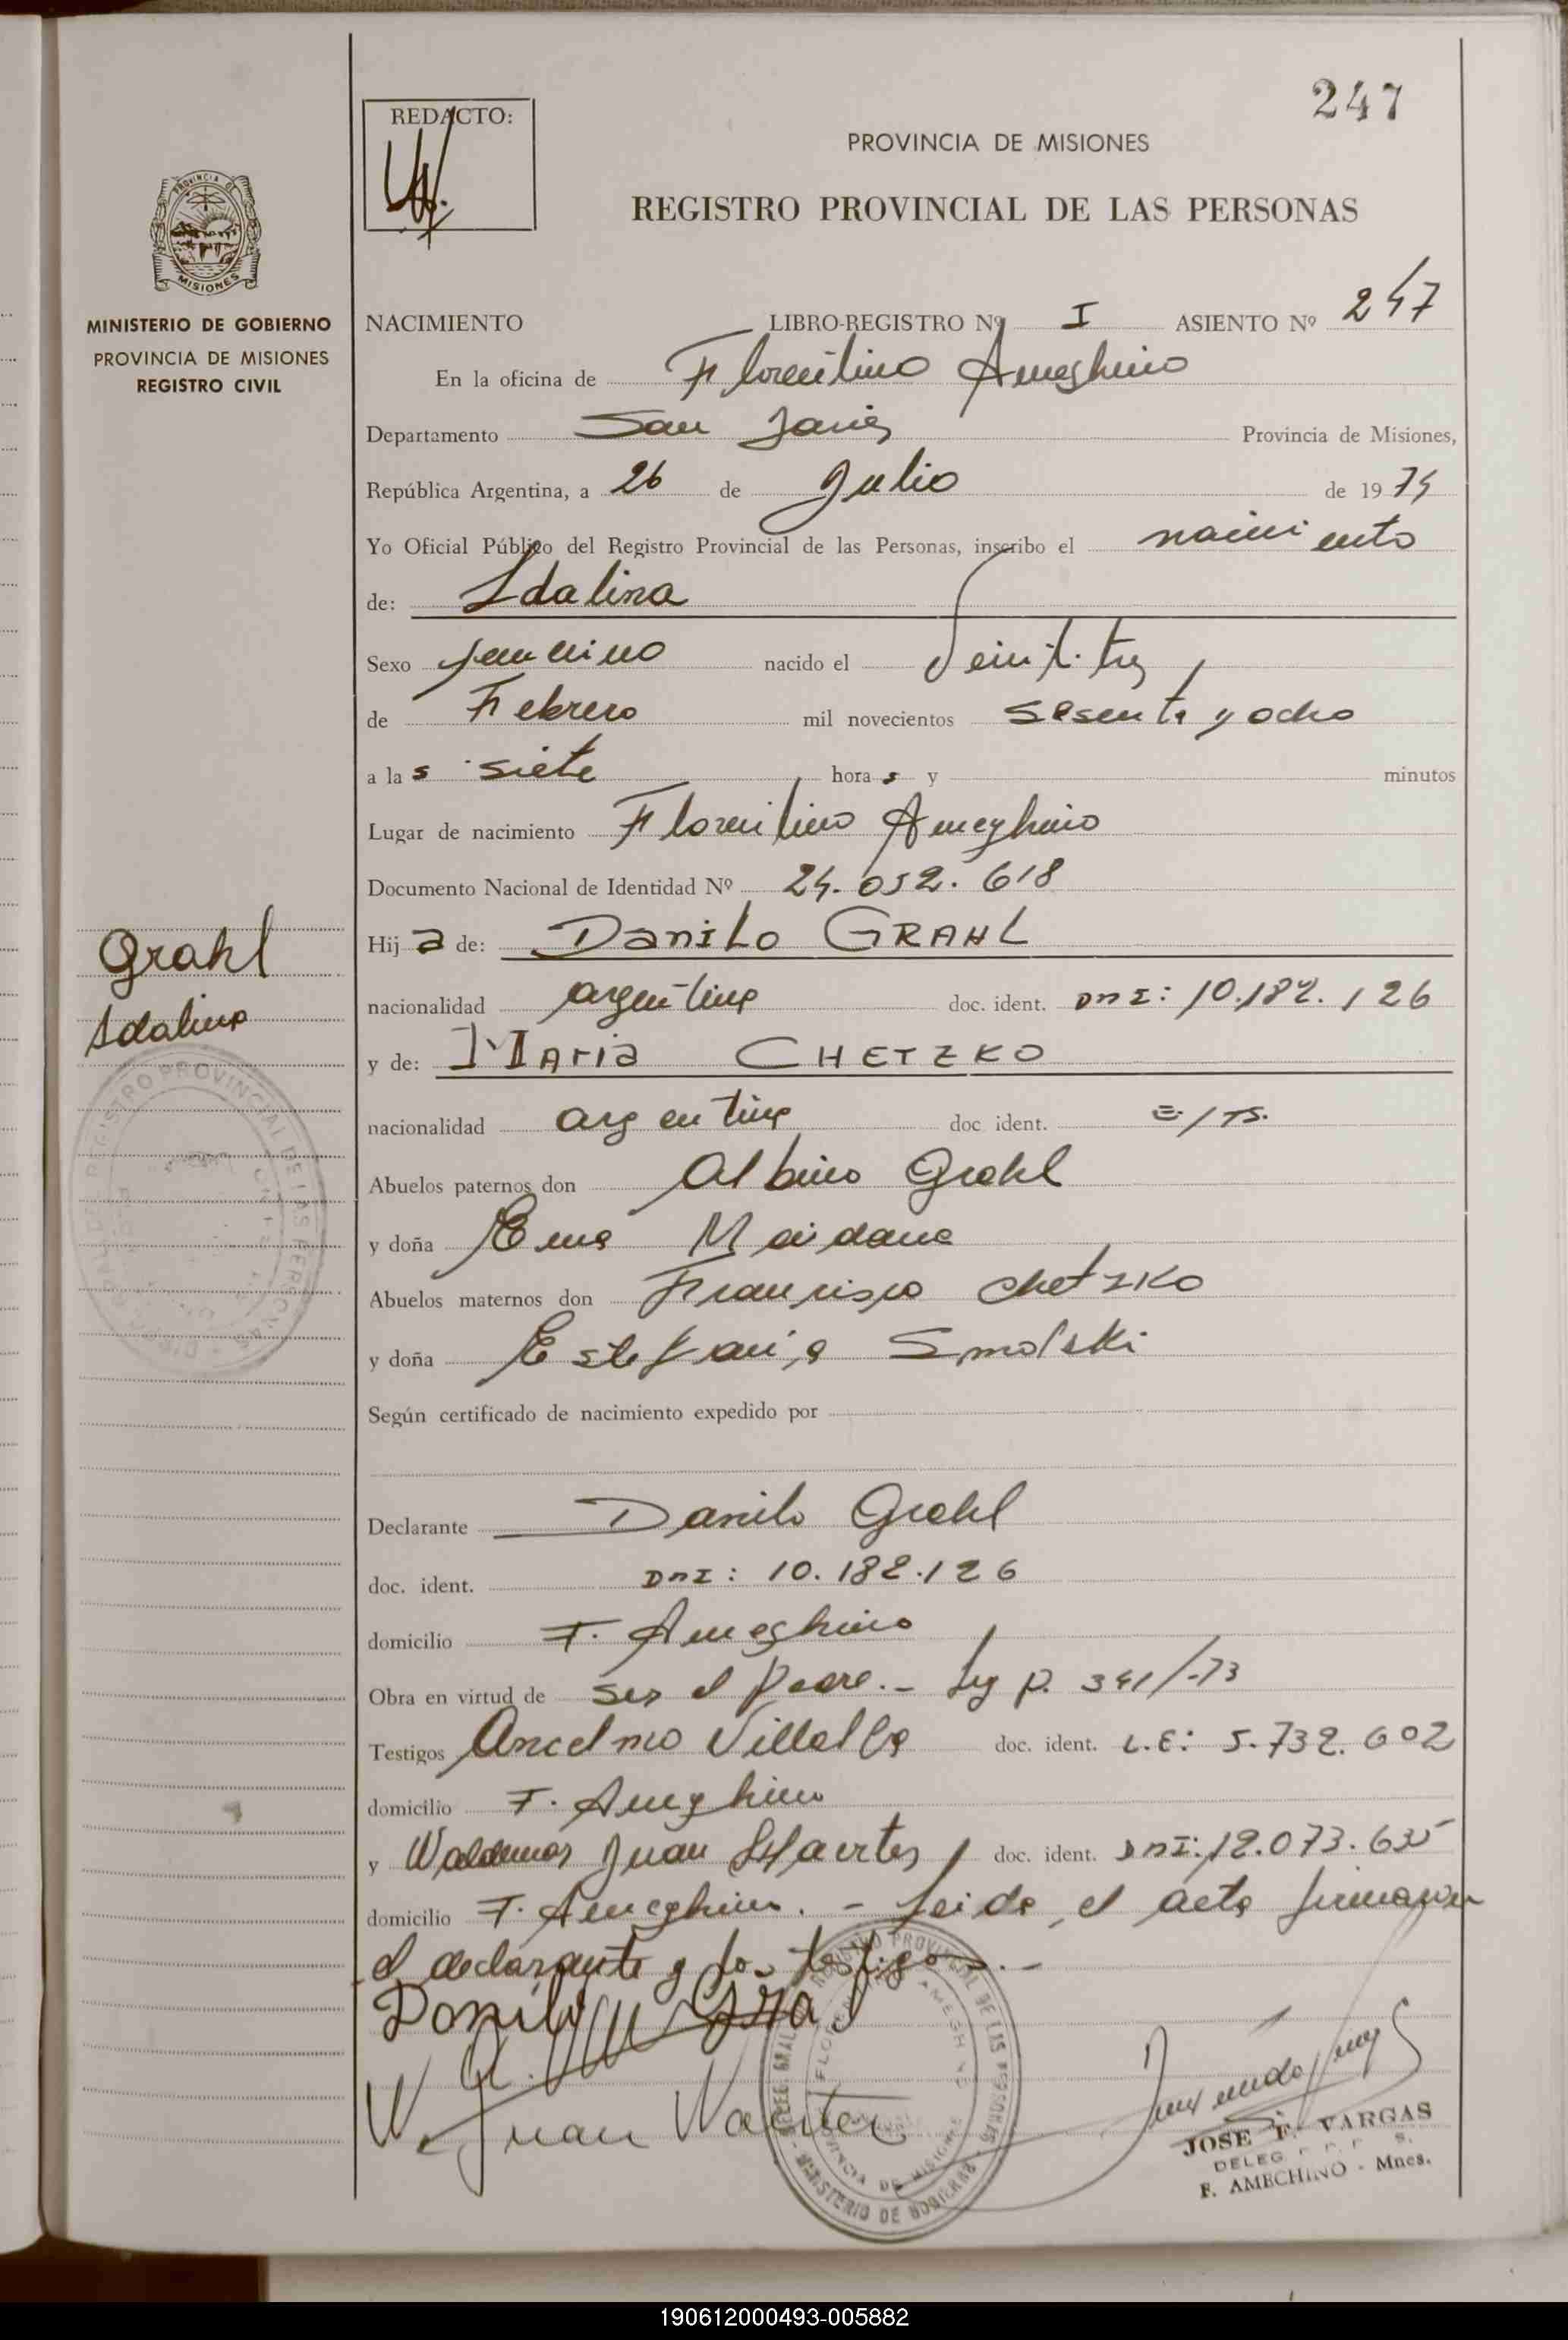 247
REDACTO:
PROVINCIA DE MISIONES
REGISTRO PROVINCIAL DE LAS PERSONAS
PROVINCIA DE
MISIONES
MINISTERIO DE GOBIERNO
PROVINCIA DE MISIONES
REGISTRO CIVIL
NACIMIENTO LIBRO-REGISTRO Nº I ASIENTO Nº 247
En la oficina de Florentino Ameghino
Departamento San Javier Provincia de Misiones,
República Argentina, a 26 de Julio de 1974
Yo Oficial Público del Registro Provincial de las Personas, inscribo el nacimiento
de: Idalina
Sexo femenino nacido el Veintitres
de Febrero mil novecientos sesenta y ocho
a las siete horas y minutos
Lugar de nacimiento Florentino Ameghino
Documento Nacional de Identidad Nº 24.052.618
Hija de: Danilo GRAHL
nacionalidad argentina doc. ident. DNI: 10.182.126
y de: Maria CHETZKO
nacionalidad argentina doc. ident.
Abuelos paternos don Albino Grahl
y doña Ema Maidana
Abuelos maternos don Francisco Chetzko
y doña Estefania Smolski
Según certificado de nacimiento expedido por
Declarante Danilo Grahl
doc. ident. DNI: 10.182.126
domicilio F. Ameghino
Obra en virtud de ser el padre.- Ley P. 341/-73
Testigos Ancelmo Villalba doc. ident. L.E: 5.732.602
domicilio F. Ameghino
y Waldemar Juan doc. ident. DNI: 12.073.635
domicilio F. Ameghino. - Leida el acta firmaron
el declarante y los testigos.-
Danilo Grahl
W. Juan
Grahl
Idalina
REGISTRO PROVINCIAL DE LAS PERSONAS
MINISTERIO DE GOBIERNO
PROVINCIA DE MISIONES
JOSE F. VARGAS
DELEG
F. AMEGHINO - Mnes.
190612000493-005882